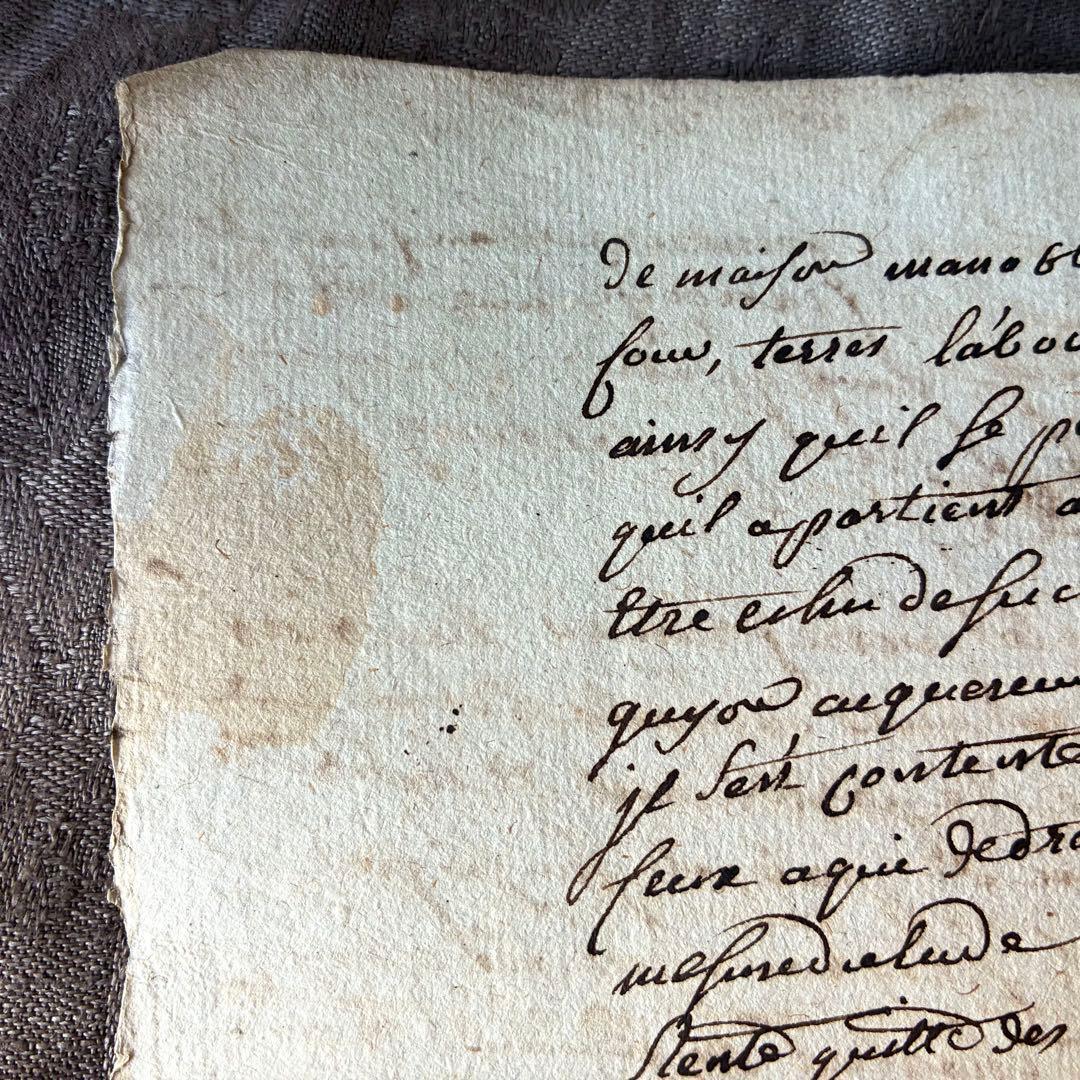 de maison mano
four, terres labou
ainsy quil se
quil appartient a
Etre et lui de suc
guyon acquereur
jl s'est contente
ceux a qui de dro
mesured et lui de
tente quitte des